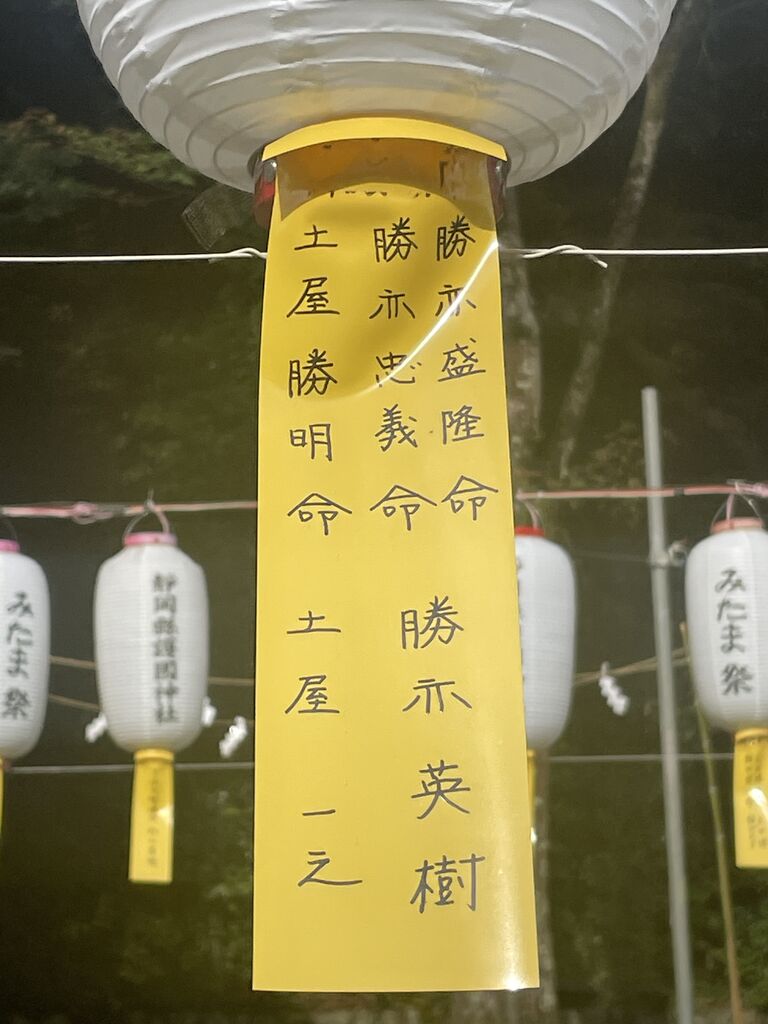 勝亦盛隆命
勝亦忠義命
勝亦英樹
土屋勝明命
土屋一之
みたま祭
静岡縣護國神社
みたま祭